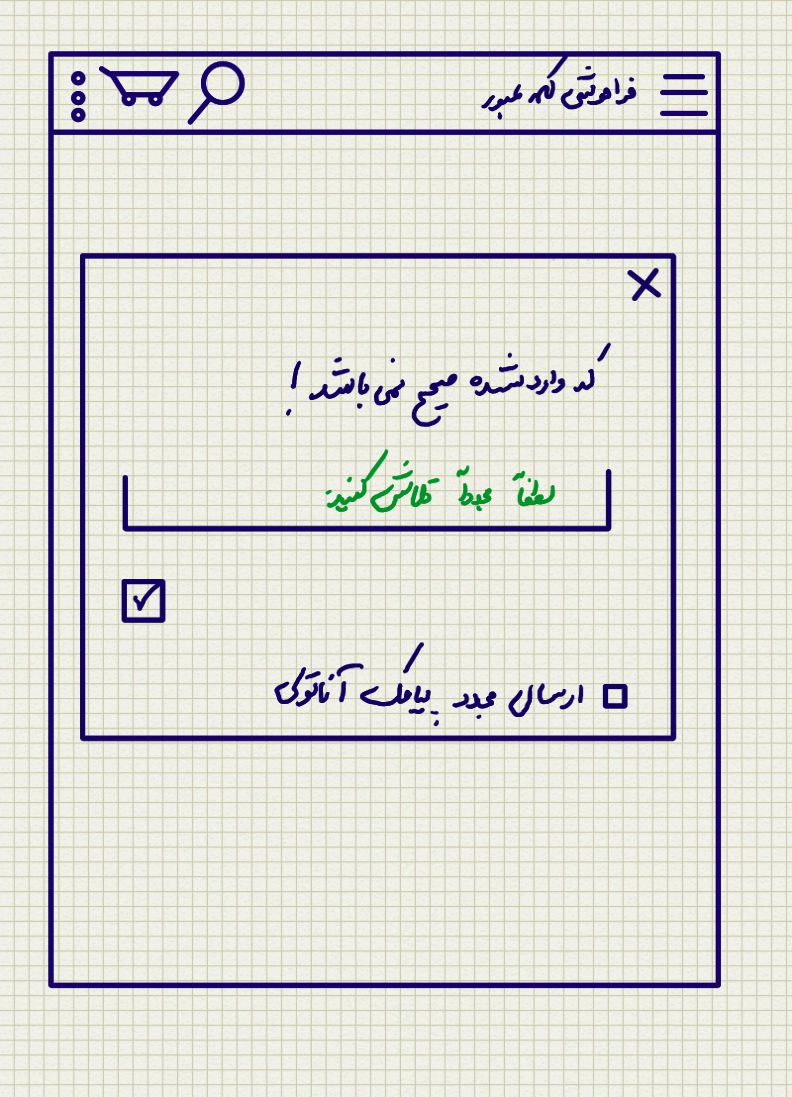 فراموشی کلمه عبور
کد وارد شده صحیح نمی باشد !
لطفاً مجدداً تلاش کنید
ارسال مجدد پیامک آناتوکی